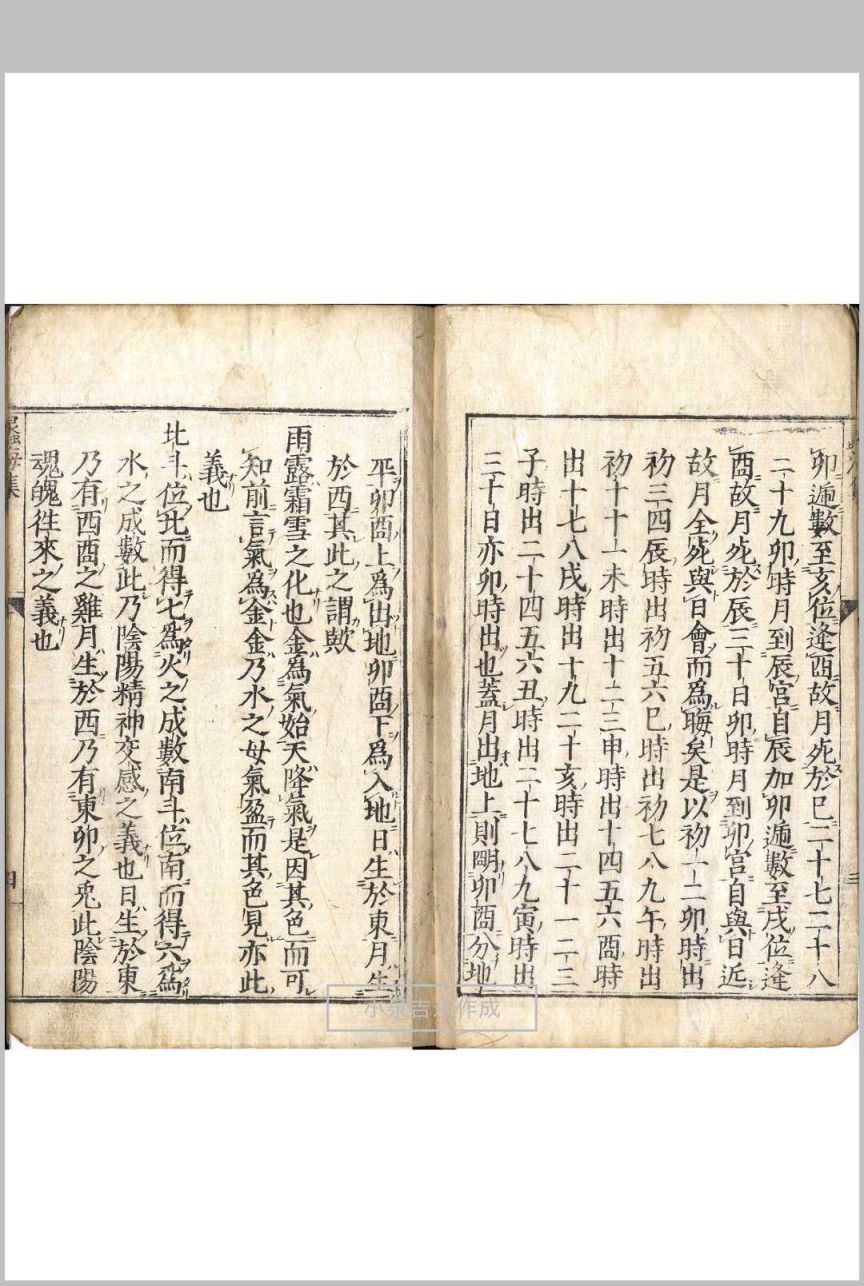 卯遁數至亥位逢酉故月死於巳二十七二十八
二十九卯時月到辰宮自辰加卯遁數至戌位逢
酉故月死於辰三十日卯時月到卯宮自與日近
故月全死與日會而爲晦矣是以初一二卯時出
初三四辰時出初五六巳時出初七八九午時出
初十十一未時出十二三申時出十四五六酉時
出十七八戌時出十九二十亥時出二十一二三
子時出二十四五六丑時出二十七八九寅時出
三十日亦卯時出也蓋月出地上則明卯酉分地
平卯酉上爲出地卯酉下爲入地日生於東月生
於西其此之謂歟
雨露霜雪之化也金爲氣始天降氣是因其色而可
知前言氣爲金金乃水之母氣盈而其色見亦此
義也
北斗位北而得七爲火之成數南斗位南而得六爲
水之成數此乃陰陽精神交感之義也日生於東
乃有西酉之雞月生於西乃有東卯之兎此陰陽
魂魄徃來之義也
小泉吉永作成